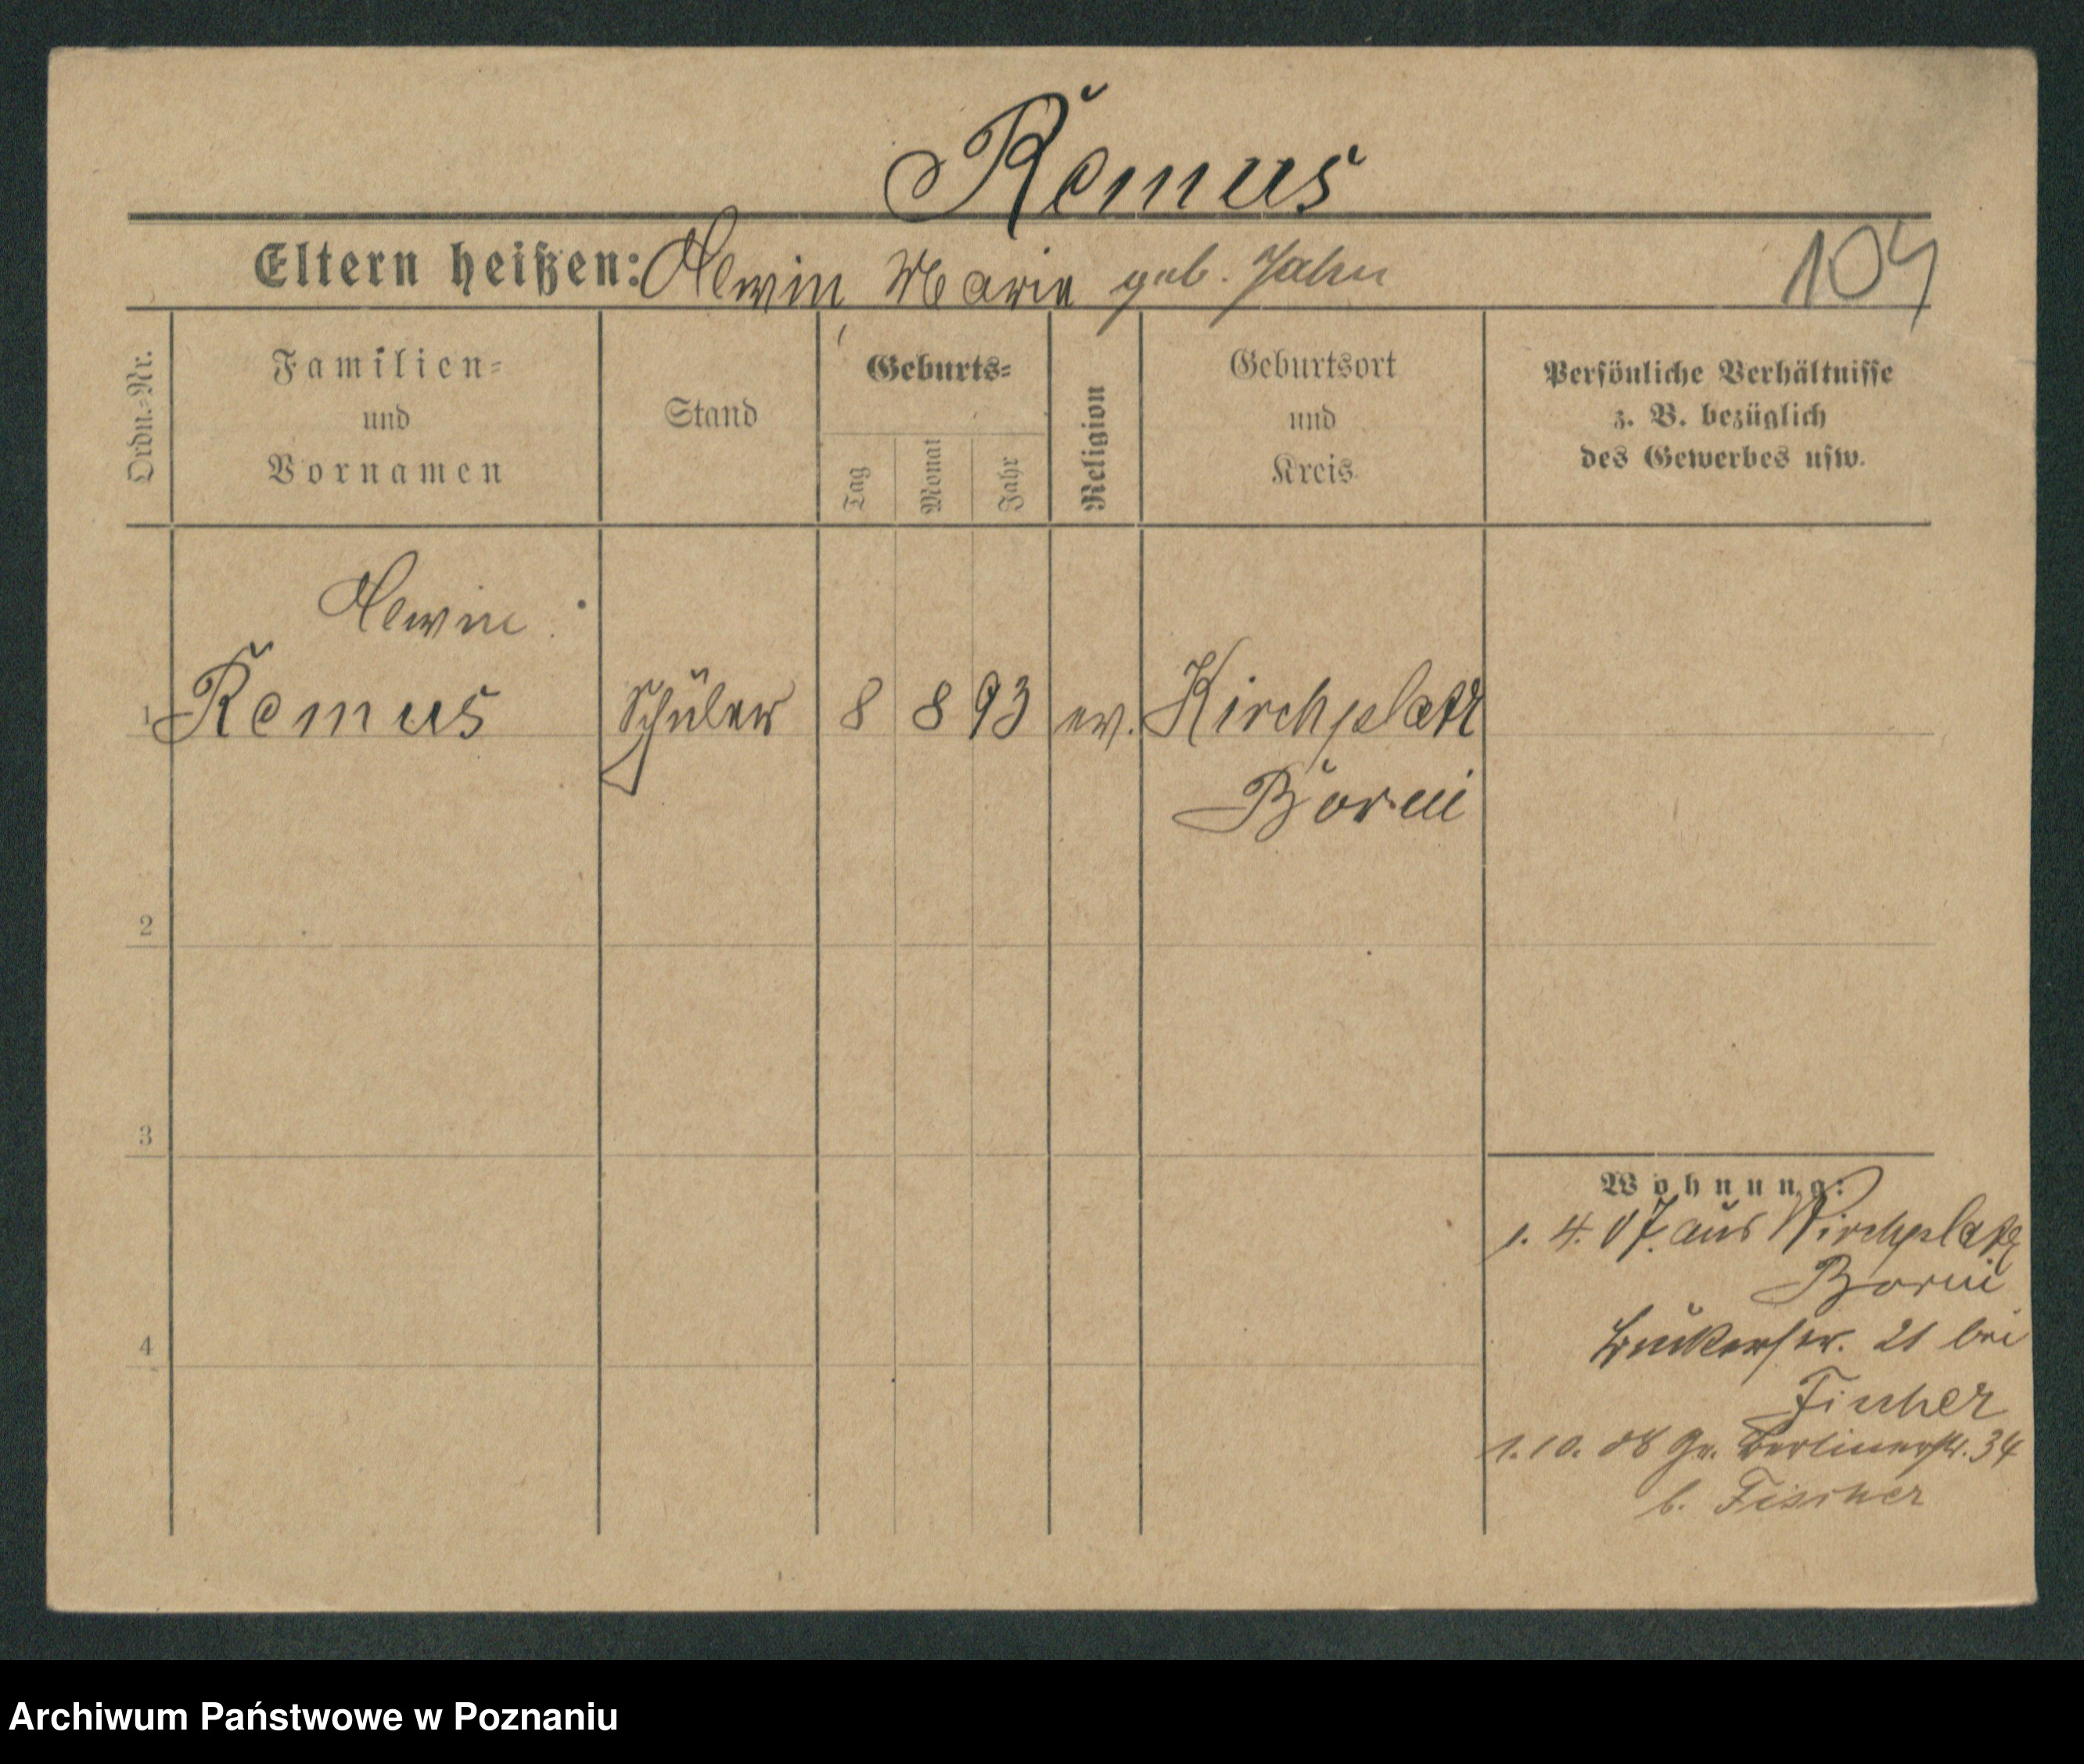 Remus
Eltern heißen: Alwin Marie geb. Jahn
104
Ordn.-Nr.
Familien-
und
Vornamen
Stand
Geburts-
Tag
Monat
Jahr
Religion
Geburtsort
und
Kreis
Persönliche Verhältnisse
z. B. bezüglich
des Gewerbes usw.
Alwin
1 Remus Schüler 8 8 93 ev. Kirchplatz
Borui
2
3
4
Wohnung:
1. 4. 07. aus Kirchplatz
Borui
21 bei
Fischer
1. 10. 08 Gr. Berlinerstr. 34
b. Fischer
Archiwum Państwowe w Poznaniu